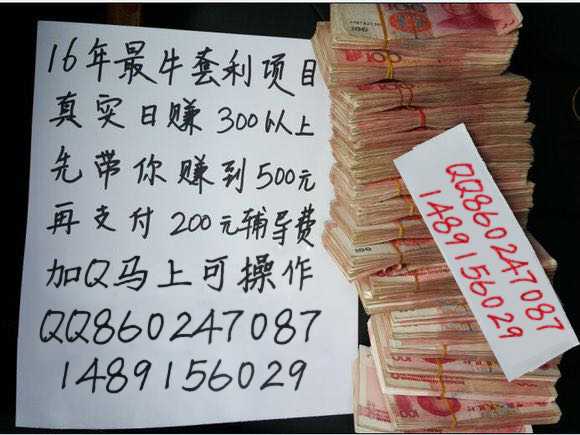 16年最牛套利项目
真实日赚300以上
先带你赚到500元
再支付200元辅导费
加Q马上可操作
QQ860247087
1489156029
QQ860247087
1489156029
100